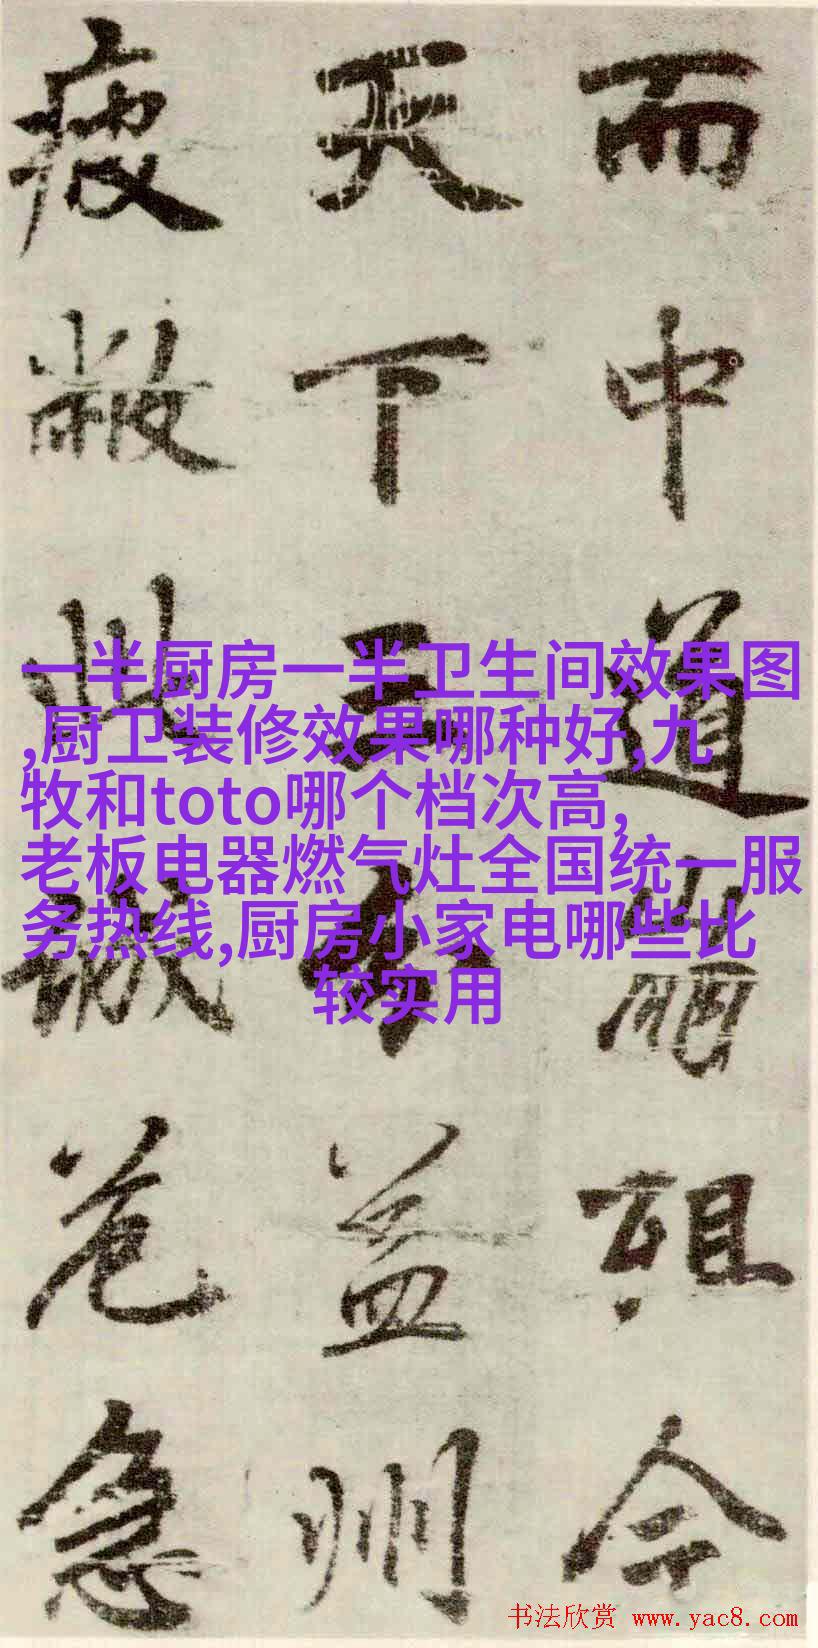 而中道崩殂今
天下三分益州
疲敝此誠危急
一半厨房一半卫生间效果图
,厨卫装修效果哪种好,九
牧和toto哪个档次高,
老板电器燃气灶全国统一服
务热线,厨房小家电哪些比
较实用
书法欣赏 www.yac8.com